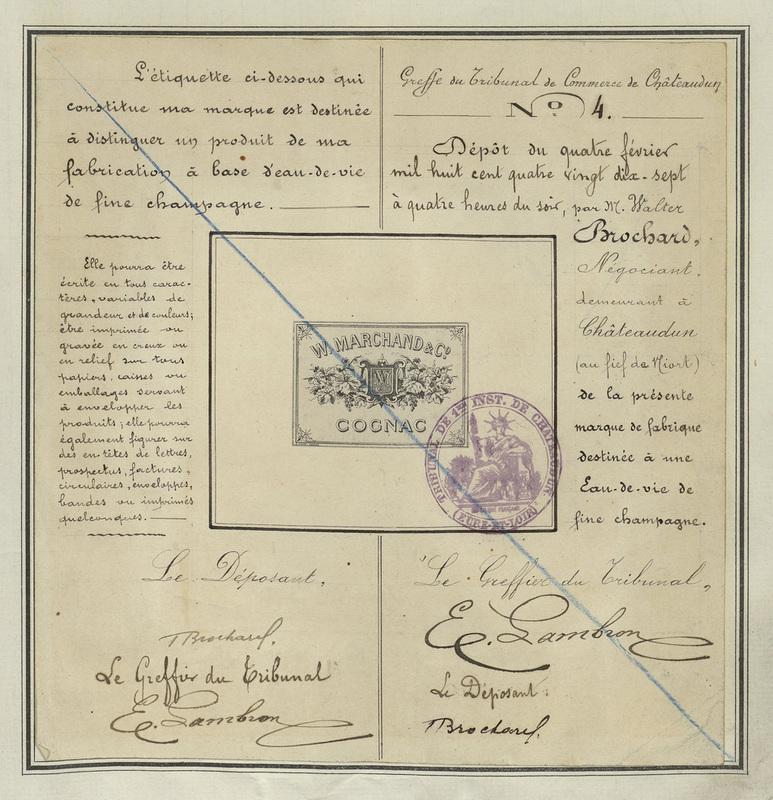 L'étiquette ci-dessous qui
constitue ma marque est destinée
à distinguer un produit de ma
fabrication à base d'eau-de-vie
de fine champagne.
Elle pourra être
écrite en tous carac-
tères, variables de
grandeur et de couleurs;
être imprimée ou
gravée en creux ou
en relief sur tous
papiers, caisses ou
emballages servant
à envelopper les
produits; elle pourra
également figurer sur
des en-têtes de lettres,
prospectus, factures,
circulaires, enveloppes,
bandes ou imprimés
quelconques.
Le Déposant,
Brochard.
Le Greffier du Tribunal
E. Lambron
W. MARCHAND & Co
W
COGNAC
TRIBUNAL DE 1re INST. DE CHATEAUDUN
(EURE-ET-LOIR)
Greffe du Tribunal de Commerce de Châteaudun
No 4.
Dépôt du quatre février
mil huit cent quatre vingt dix-sept
à quatre heures du soir, par M. Walter
Brochard,
Négociant,
demeurant à
Châteaudun
(au fief de Niort)
de la présente
marque de fabrique
destinée à une
Eau-de-vie de
fine champagne.
Le Greffier du Tribunal,
E. Lambron
Le Déposant:
Brochard.